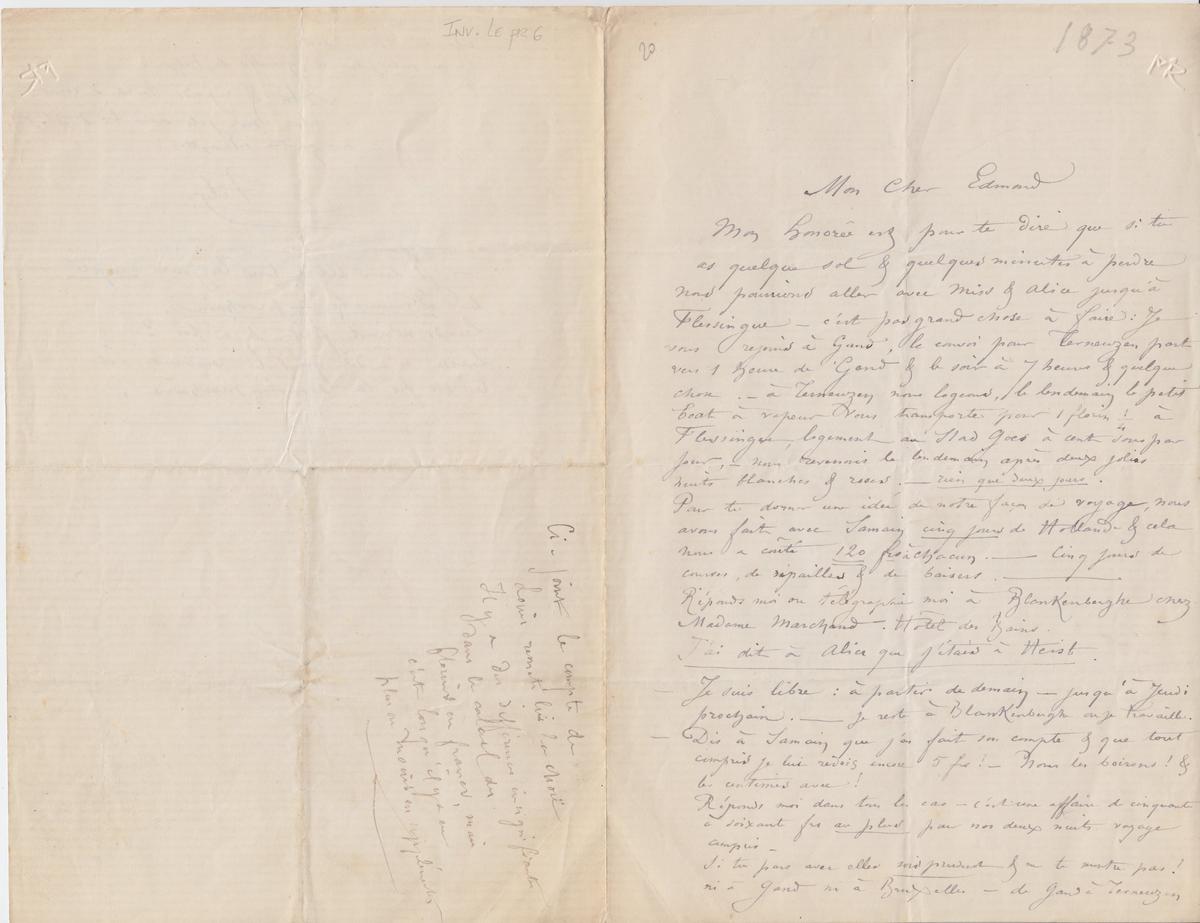 INV. LE pr 6
20
1873
Mon Cher Edmond
Mon honorée est pour te dire que si tu
as quelque sol & quelques minutes à perdre
nous pourrions aller avec Miss & Alice jusqu'à
Flessingue – c'est pas grand chose à faire : Je
vous rejoins à Gand, le convoi pour Terneuzen part
vers 1 heure de Gand & le soir à 7 heures & quelque
chose. – à Terneuzen nous logeons, le lendemain le petit
bcat à vapeur vous transporte pour 1 florin 1/4 à
Flessingue, logement au Stad Goes à cent sous par
jour, – nous revenons le lendemain après deux jolies
nuits blanches & roses. – rien que deux jours.
Pour te donner une idée de notre façon de voyage, nous
avons fait avec Samain cinq jours de Hollande & cela
nous a coûté 120 frs chacun. — Cinq jours de
courses, de ripailles & de baisers. —
Réponds moi ou télégraphie moi à Blankenberghe chez
Madame Marchand. Hôtel des Bains.
J'ai dit à Alice que j'étais à Heist.
– Je suis libre : à partir de demain – jusqu'à Jeudi
prochain. — je reste à Blankenbergh où je travaille.
– Dis à Samain que j'ai fait son compte & que tout
compris je lui redois encore 5 frs ! – Nous les boirons ! &
les centimes avec !
Réponds moi dans tous les cas – c'est une affaire de cinquante
à soixante frs au plus par nos deux nuits voyage
compris –
Si tu pars avec elles sois prudent & ne te montre pas !
ni à Gand ni à Bruxelles – de Gand à Terneuzen
Ci-joint le compte de
Louis remets lui la chose
Il y a des différences insignifiantes
dans le calcul des
florins en francs, mais
c'est lorsqu'il y a eu
plus ou moins en